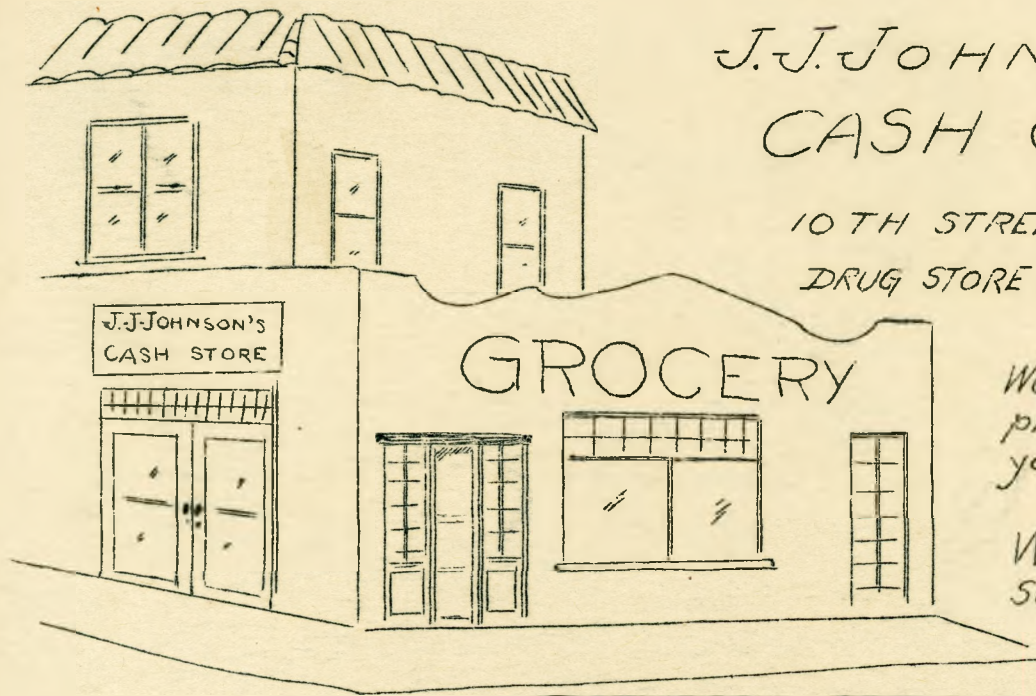 J.J.JOHN
CASH
10TH STREE
DRUG STORE
J.J.JOHNSON'S
CASH STORE
GROCERY